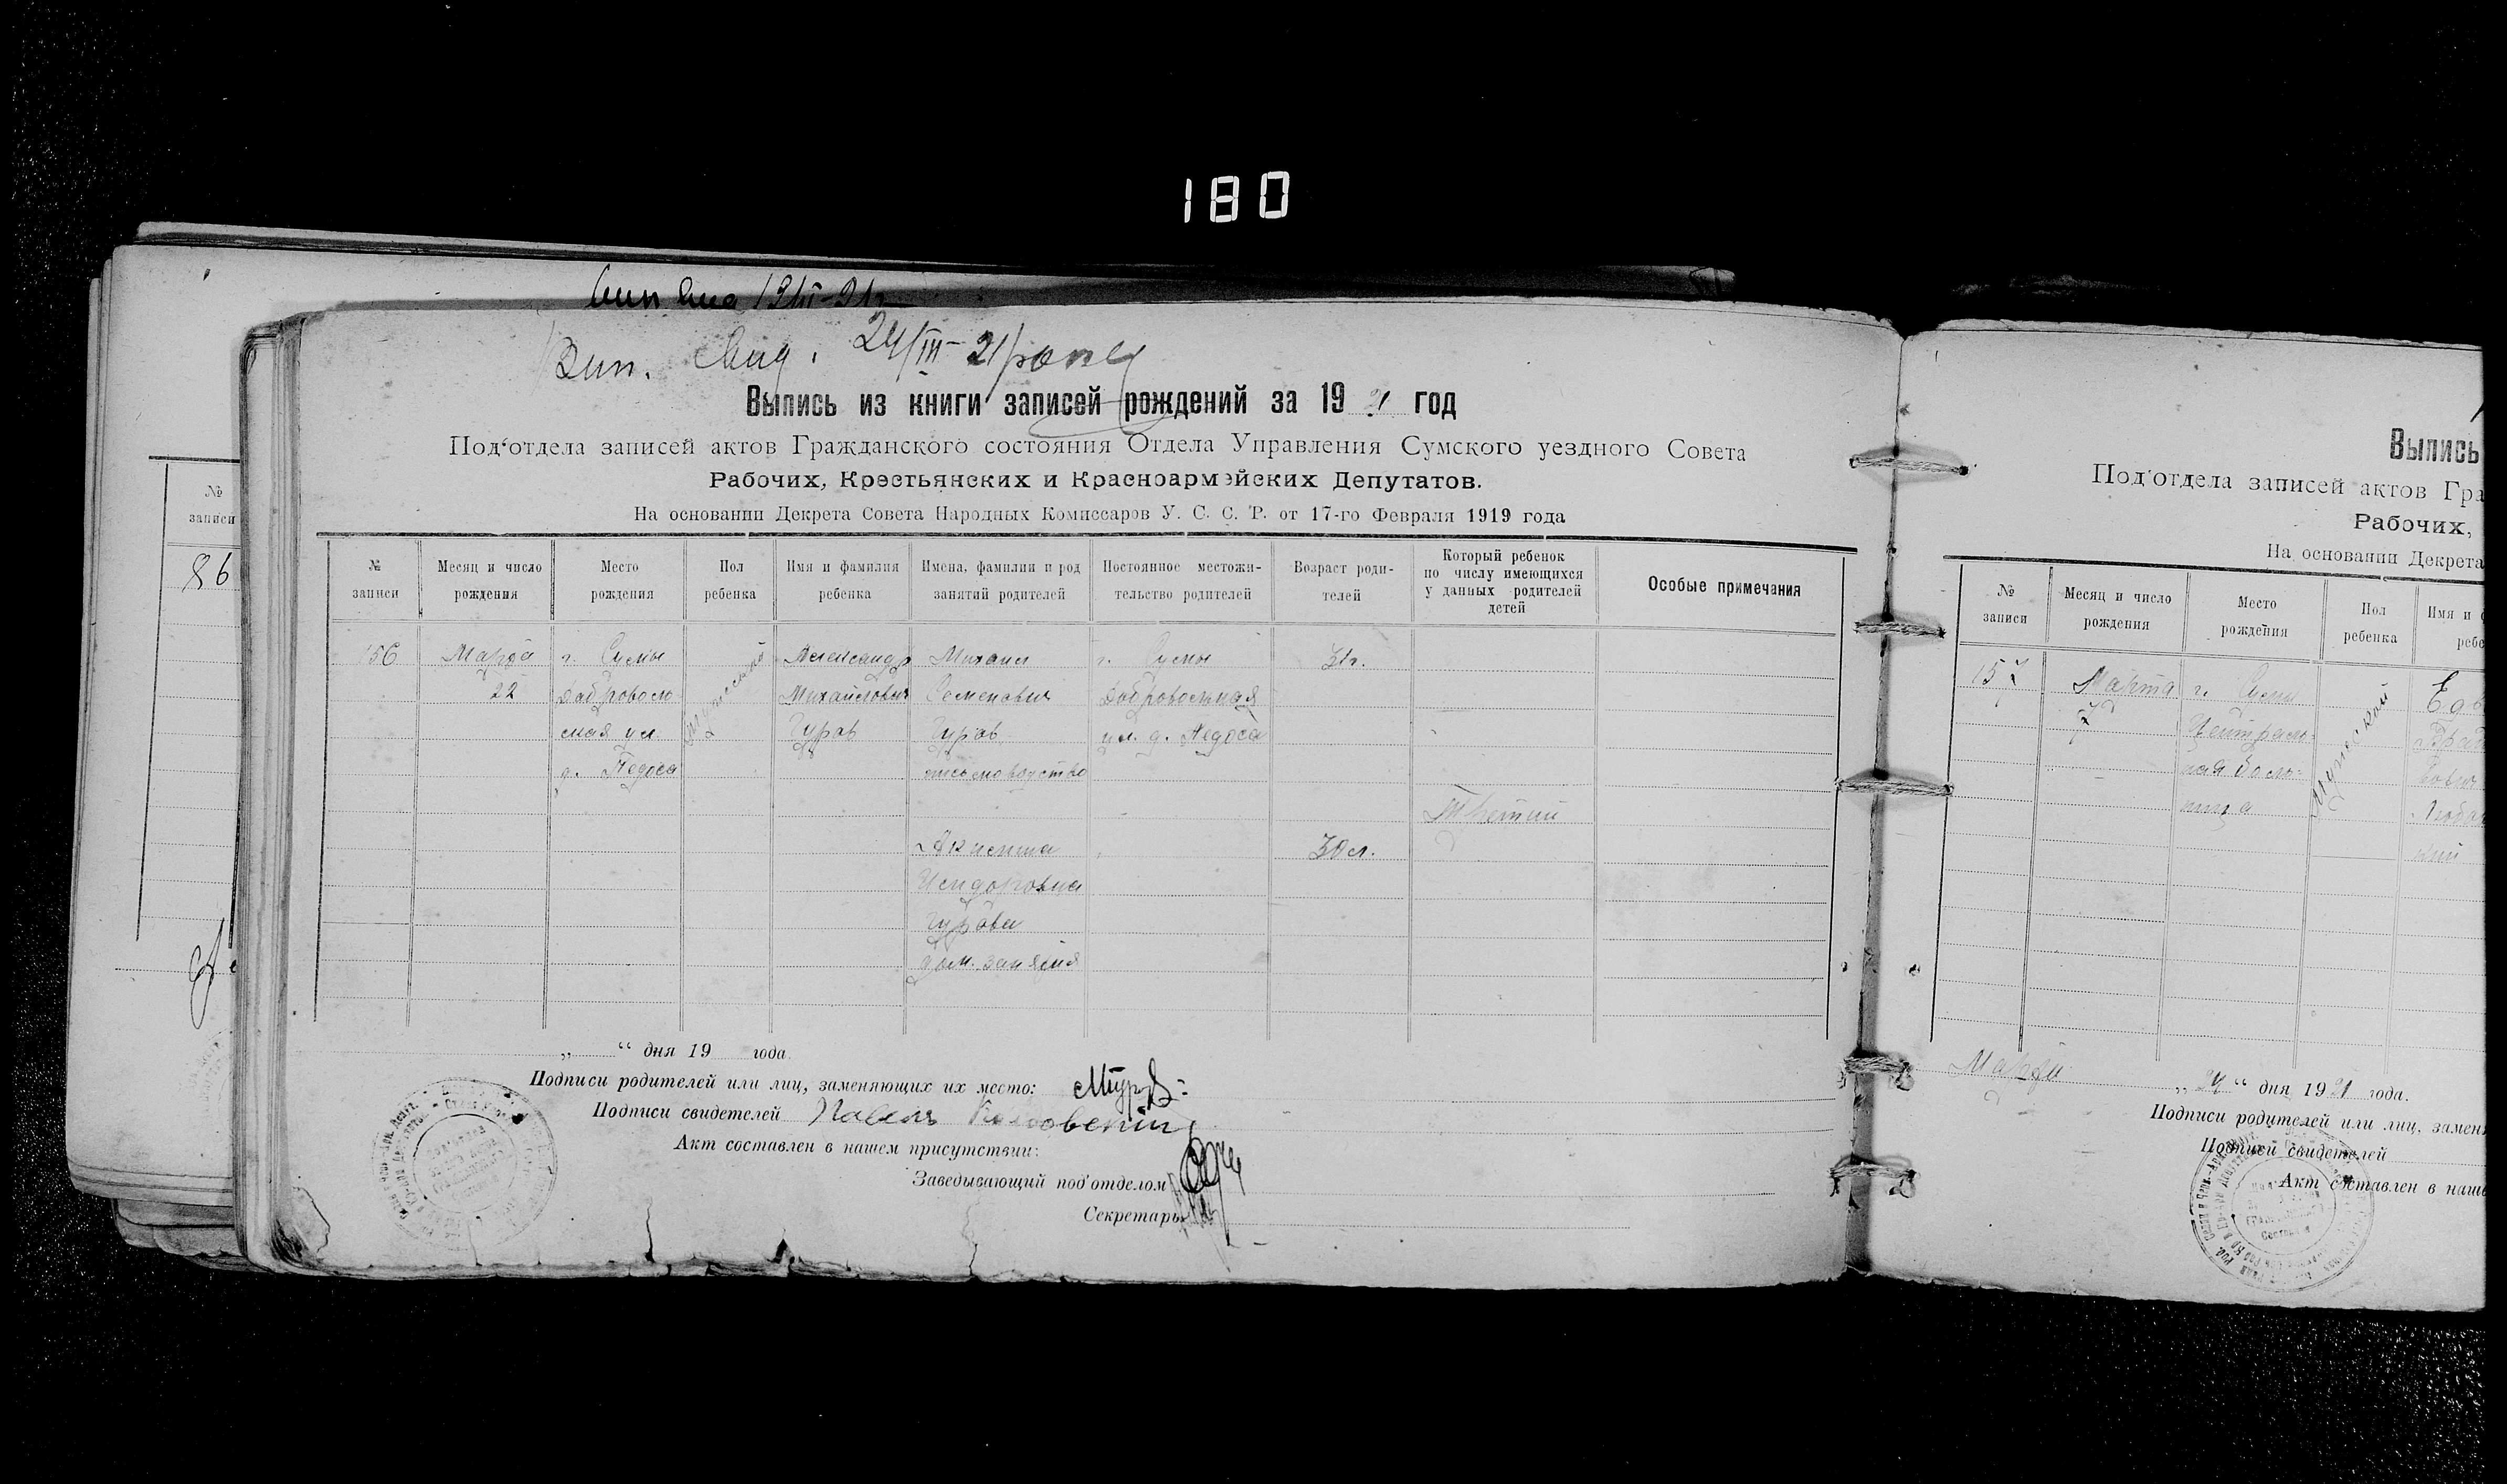 180
Вип. 24/III-21 року
Выпись из книги записей рождений за 1921 год
Под‘отдела записей актов Гражданского состояния Отдела Управления Сумского уездного Совета
Рабочих, Крестьянских и Красноармейских Депутатов.
На основании Декрета Совета Народных Комиссаров У. С. С. Р. от 17-го Февраля 1919 года
№ записи
Месяц и число рождения
Место рождения
Пол ребенка
Имя и фамилия ребенка
Имена, фамилии и род занятий родителей
Постоянное местожительство родителей
Возраст родителей
Который ребенок по числу имеющихся у данных родителей детей
Особые примечания
156
Марта
22
г. Сумы
Добровольная ул.
д. Недоса
Мужской
Александр
Михайлович
Гуров
Михаил
Семенович
Гуров
письмоводство
г. Сумы
Добровольная
ул. д. Недоса
31г.
Третий
Акилина
Исидоровна
Гурова
дом. занятия
30л.
„ “ дня 19 года
Подписи родителей или лиц, заменяющих их место: МГуров
Подписи свидетелей Павелъ
Акт составлен в нашем присутствии:
Заведывающий под‘отделом
Секретарь
№ записи
86
Выпись
Под‘отдела записей актов Гра
Рабочих,
На основании Декрета
№ записи
Месяц и число рождения
Место рождения
Пол ребенка
Имя и ф
ребе
157
Марта
7
г. Сумы
Центральная больница
Мужской
Марта „24“ дня 1921 года.
Подписи родителей или лиц, заменя
Подписи свидетелей
Акт составлен в наше